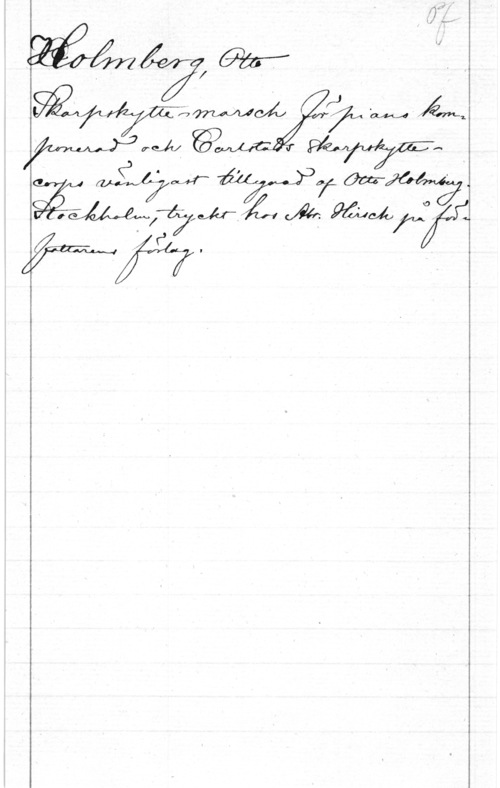 of
Holmberg, Otto
Skarpskytte-marsch för piano kom-
ponerad och Carlstads Skarpskytte-
corps vänligast tillegnad af Otto Holmberg.
Stockholm, tryckt hos Abr. Hirsch på för-
fattarens förlag.